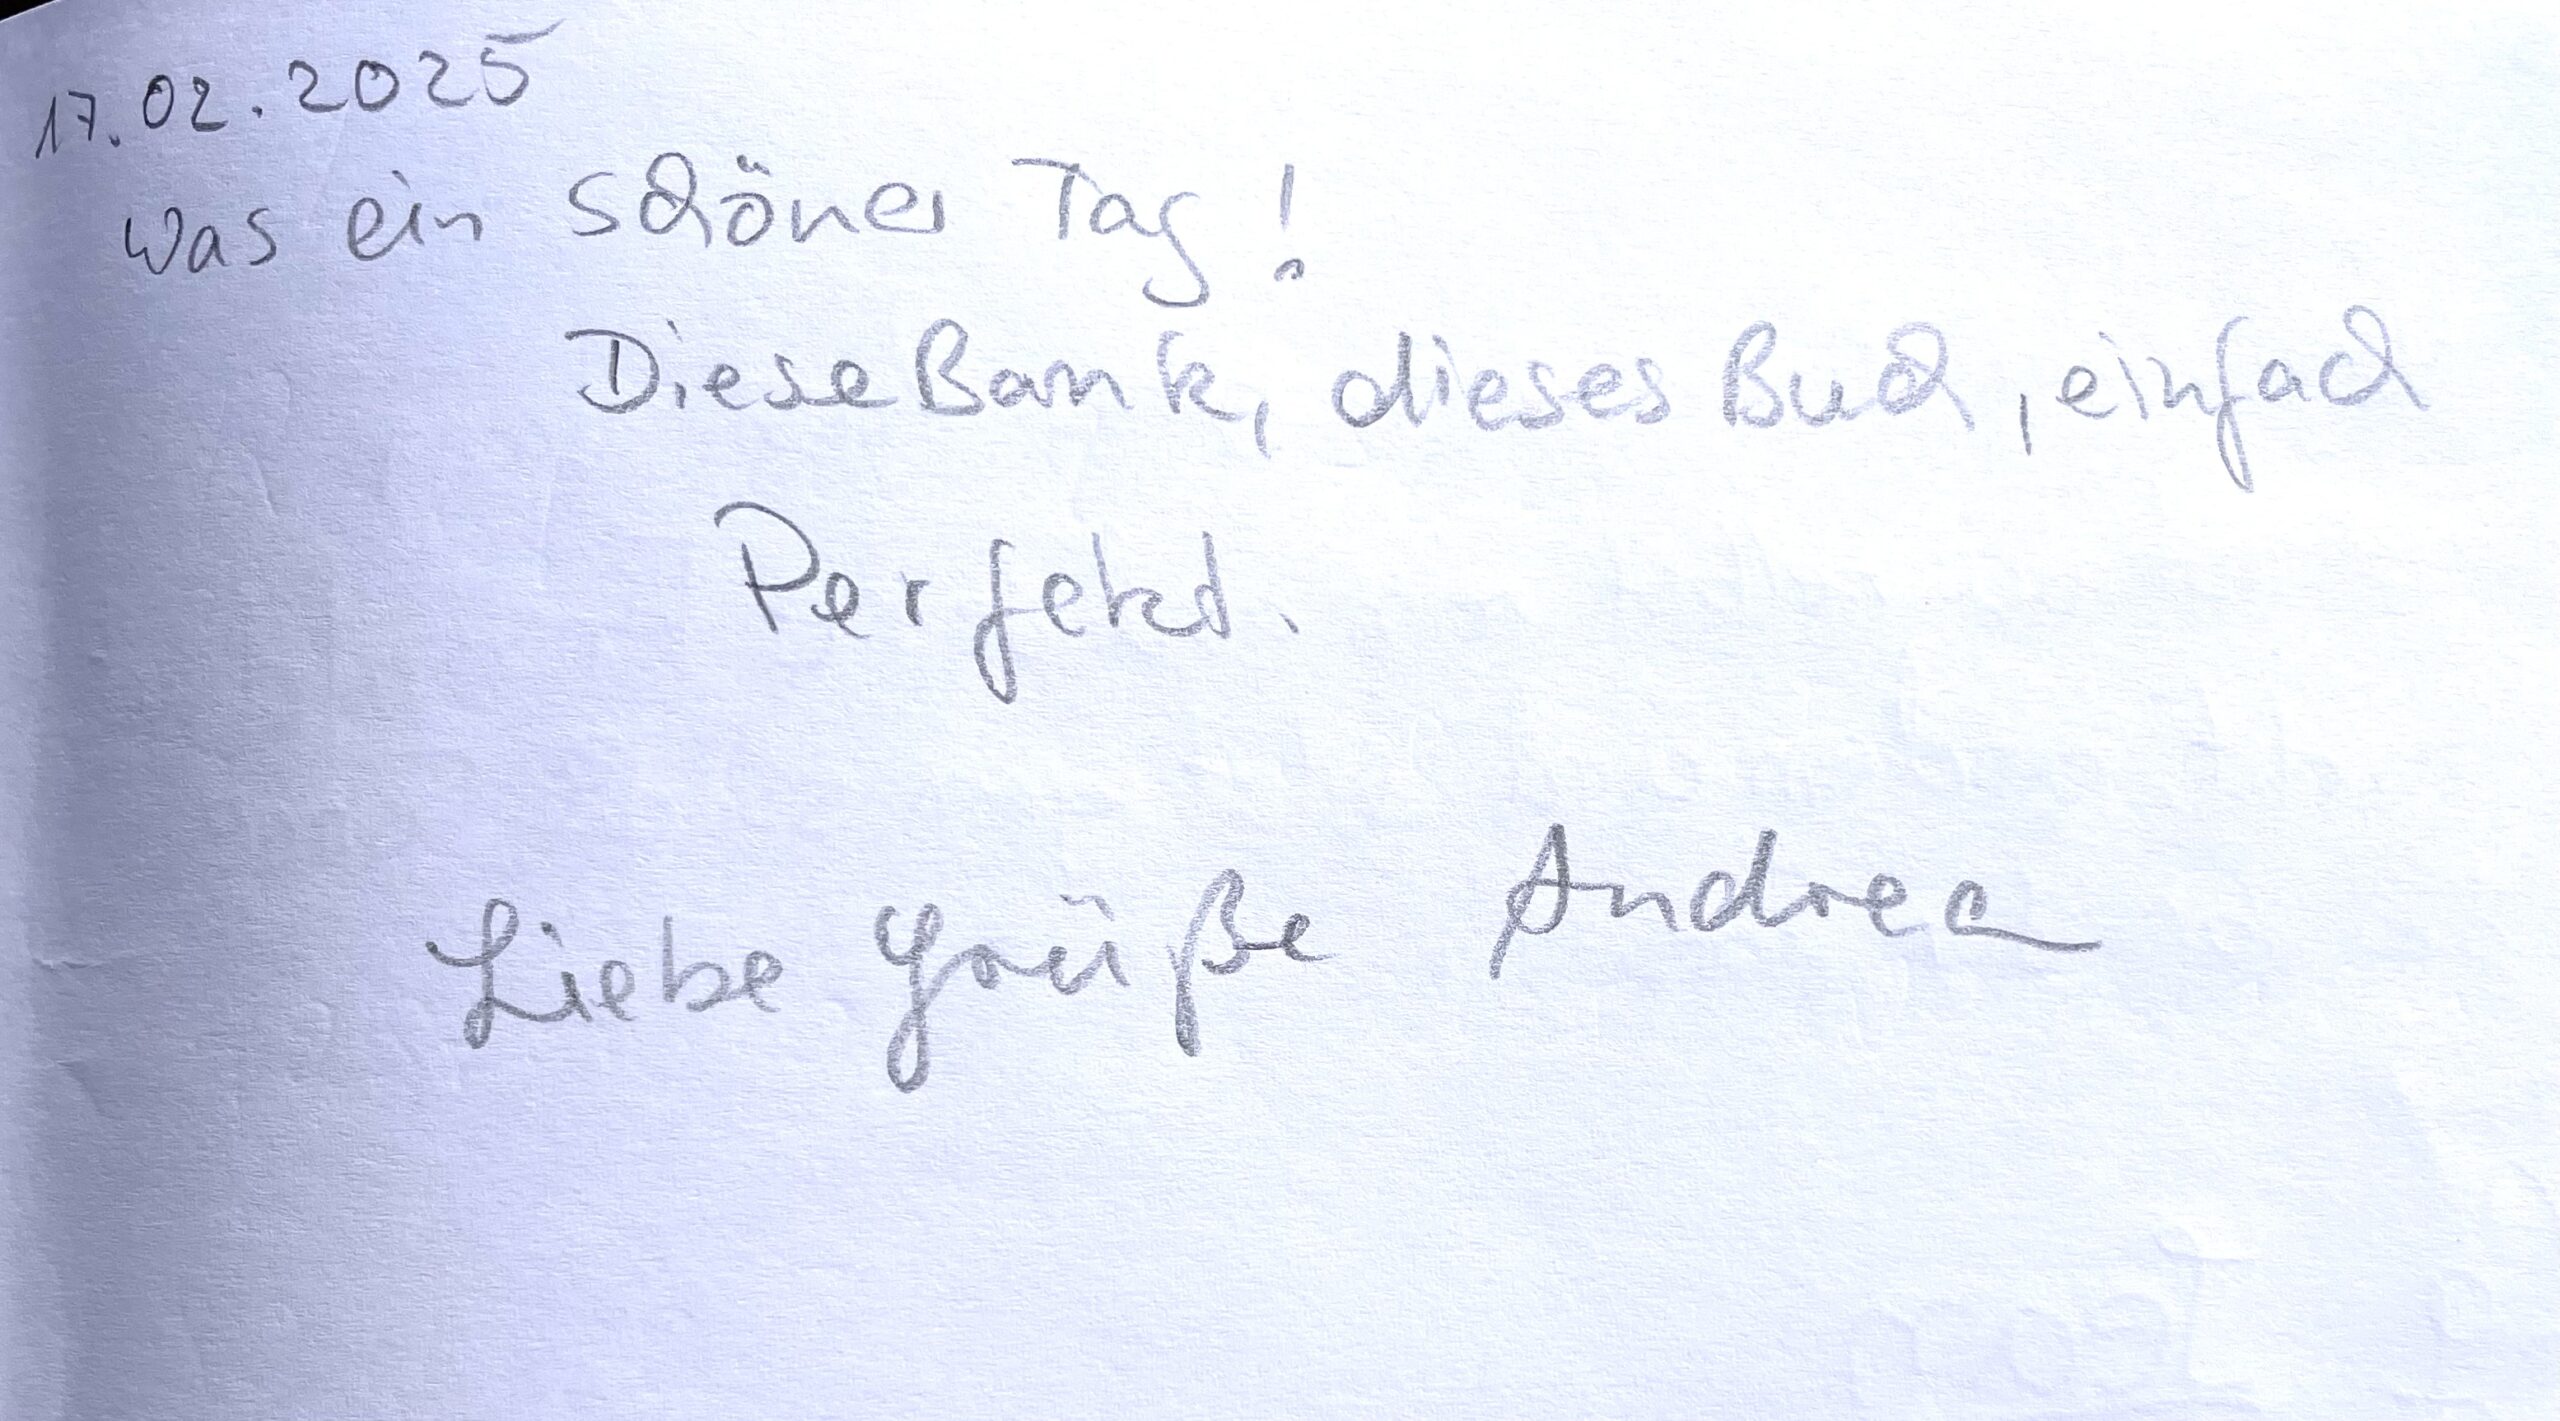 17.02.2025
Was ein schöner Tag!
Diese Bank, dieses Buch, einfach
Perfekt.
Liebe Grüße Andrea